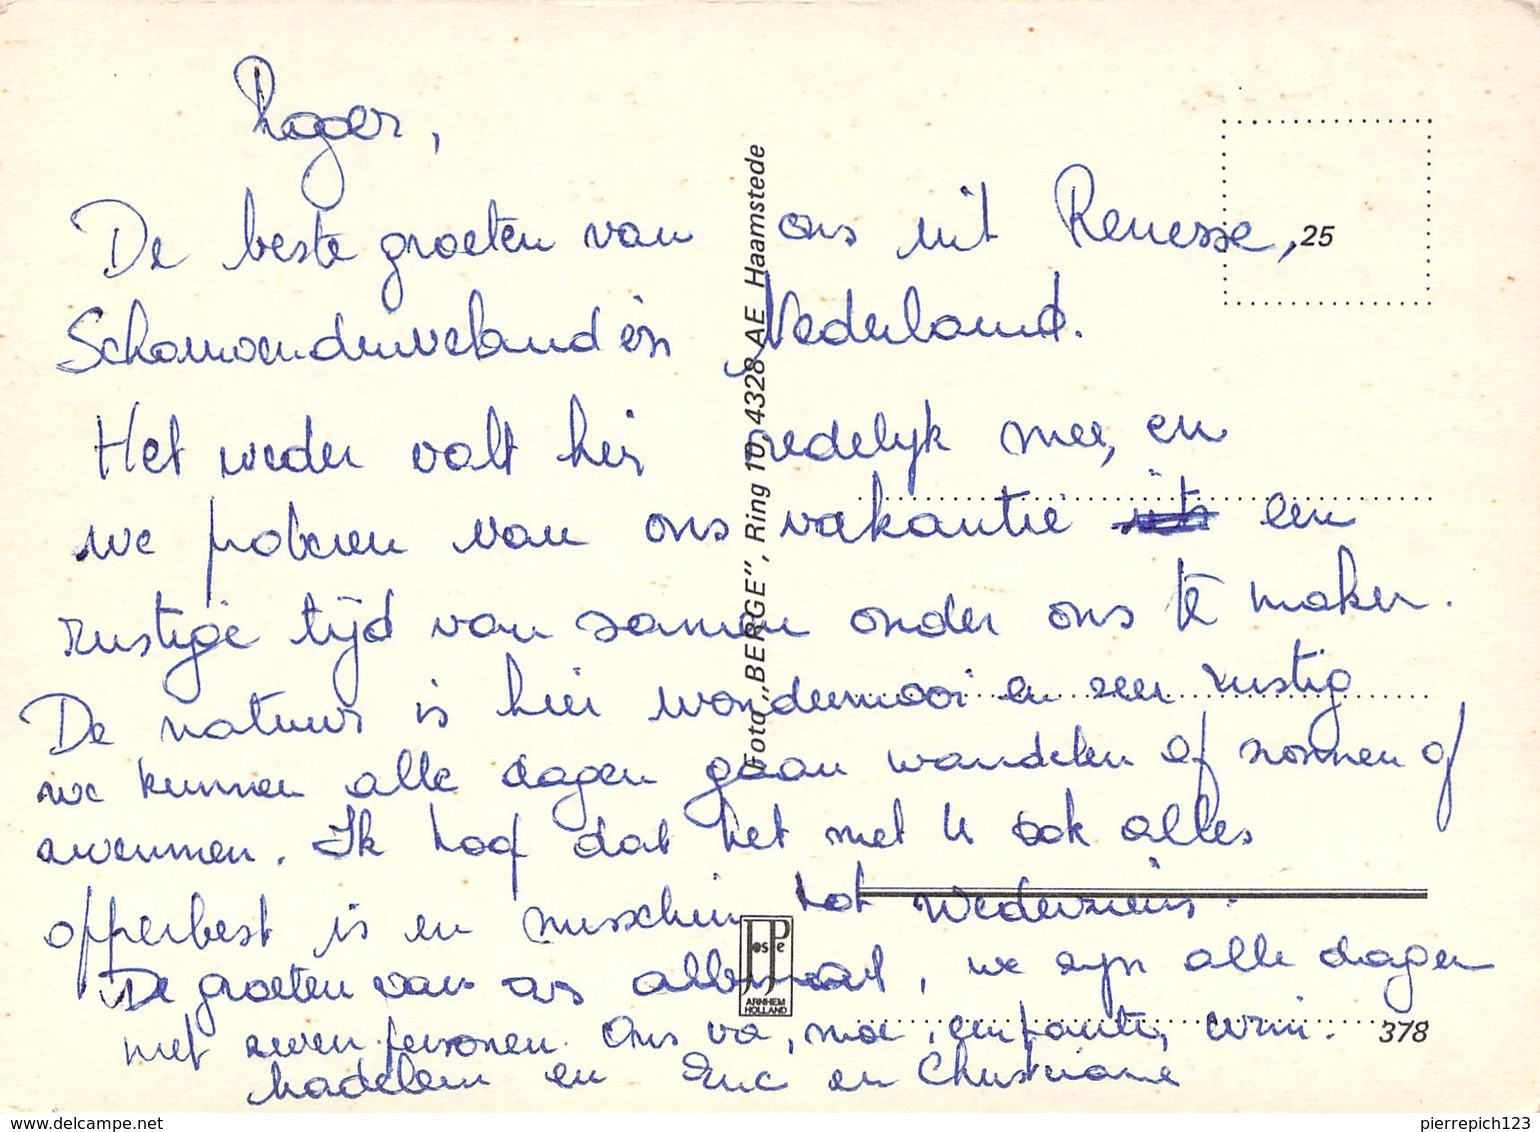 Roger,
De beste groeten van ons uit Renesse,
Schouwenduiveland in Nederland.
Het weder valt hier redelijk mee, en
we proberen van ons vakantie een
rustige tijd van samen onder ons te maken.
De natuur is hier wondermooi en zeer rustig
we kunnen alle dagen gaan wandelen of zonnen of
zwemmen. Ik hoof dat het met U ook alles
opperbest is en misschien tot Wederziens.
De groeten van ons allemaal, we zijn alle dagen
met zeven personen. Ons va, moe,
Madeleine en Eric en Christiane
Foto „BERGE”, Ring 10, 4328 AE Haamstede
25
JosPé
ARNHEM
HOLLAND
378
delcampe.net
pierrepich123